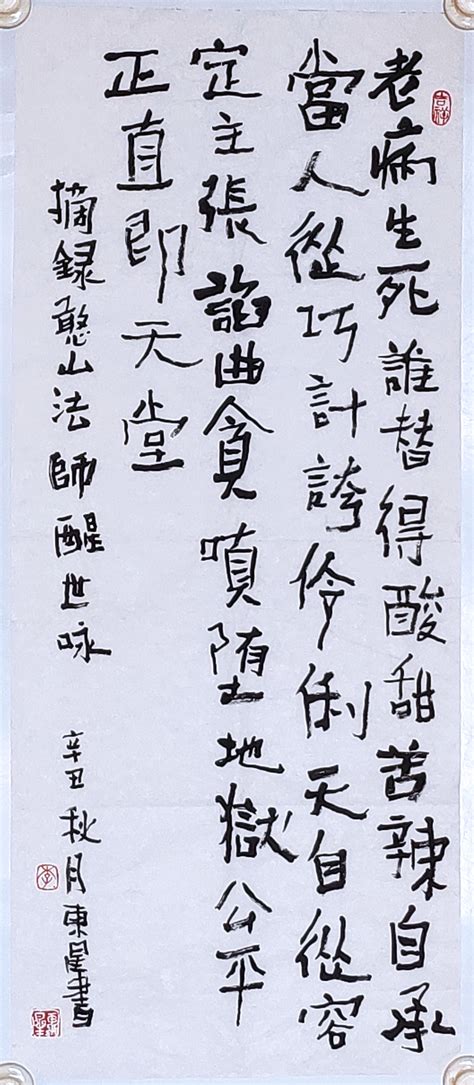 吉祥
老病生死誰替得酸甜苦辣自承
當人從巧計誇伶俐天自從容
定主張諂曲貪嗔堕地獄公平
正直即天堂
摘録憨山法師醒世咏
辛丑秋月東星書
李
東星